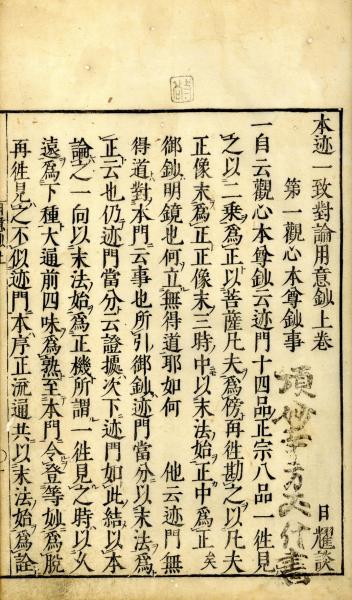 本迹一致對論用意鈔上卷
日耀談
第一觀心本尊鈔事
一自云觀心本尊鈔云迹門十四品正宗八品一徃見
之以二乘爲正以菩薩凡夫爲傍再徃勘之以凡夫
正像末爲正正像末三時中以末法始正中爲正矣
御鈔明鏡也何立無得道耶如何　他云迹門無
得道對本門云事也所引御鈔迹門當分以末法爲
正云也仍迹門當分云證據次下迹門如此結以本
論之一向以末法始爲正機所謂一徃見之時以久
遠爲下種大通前四味爲熟至本門令登等妙爲脫
再徃見之不似迹門本序正流通共以末法始爲詮